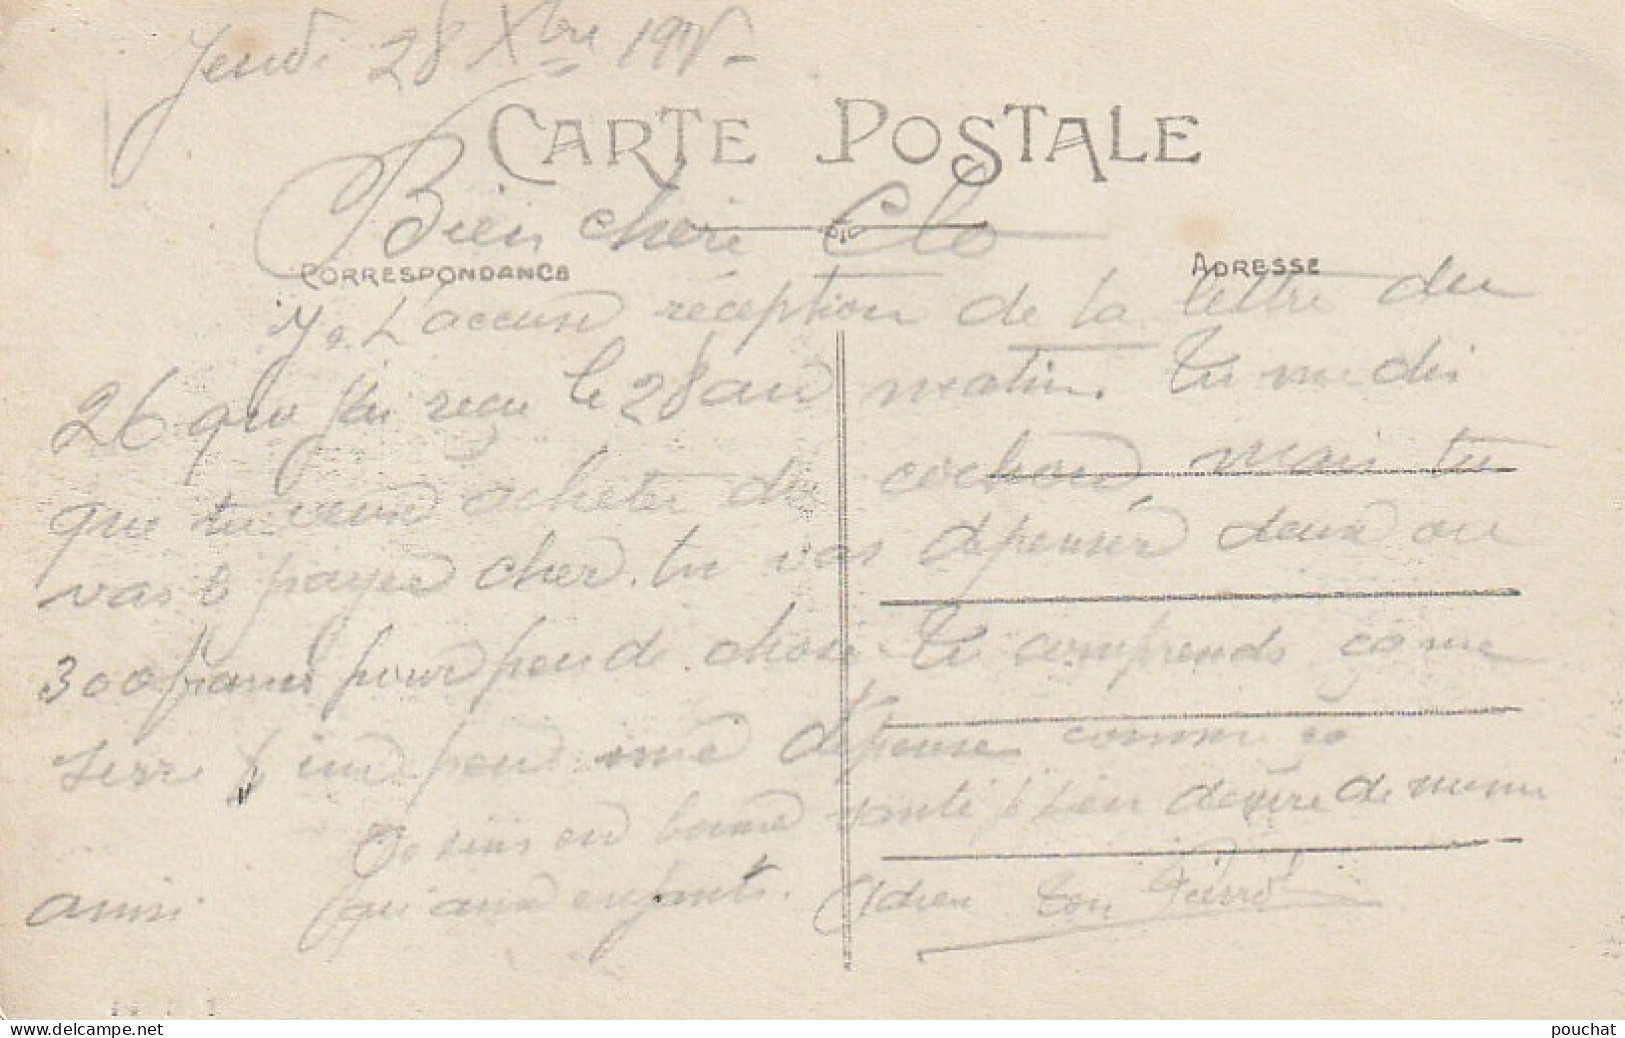 Jeudi 28 Xbre 191
CARTE POSTALE
Bien chère Clo
CORRESPONDANCE
ADRESSE
Je t'accuse réception de la lettre du
26 que j'ai reçu le 28 au matin. Tu me dis
que tu veux acheter du cochon mais tu
vas le payer cher. tu vas dépensér deux ou
300 francs pour peu de chose Tu comprends ça me
serre un peu une dépense comme ça
Je suis en bonne santé t'en désire de meme
ainsi qui aux enfants. Adieu ton Pierre
pouchat
(c) delcampe.net Website